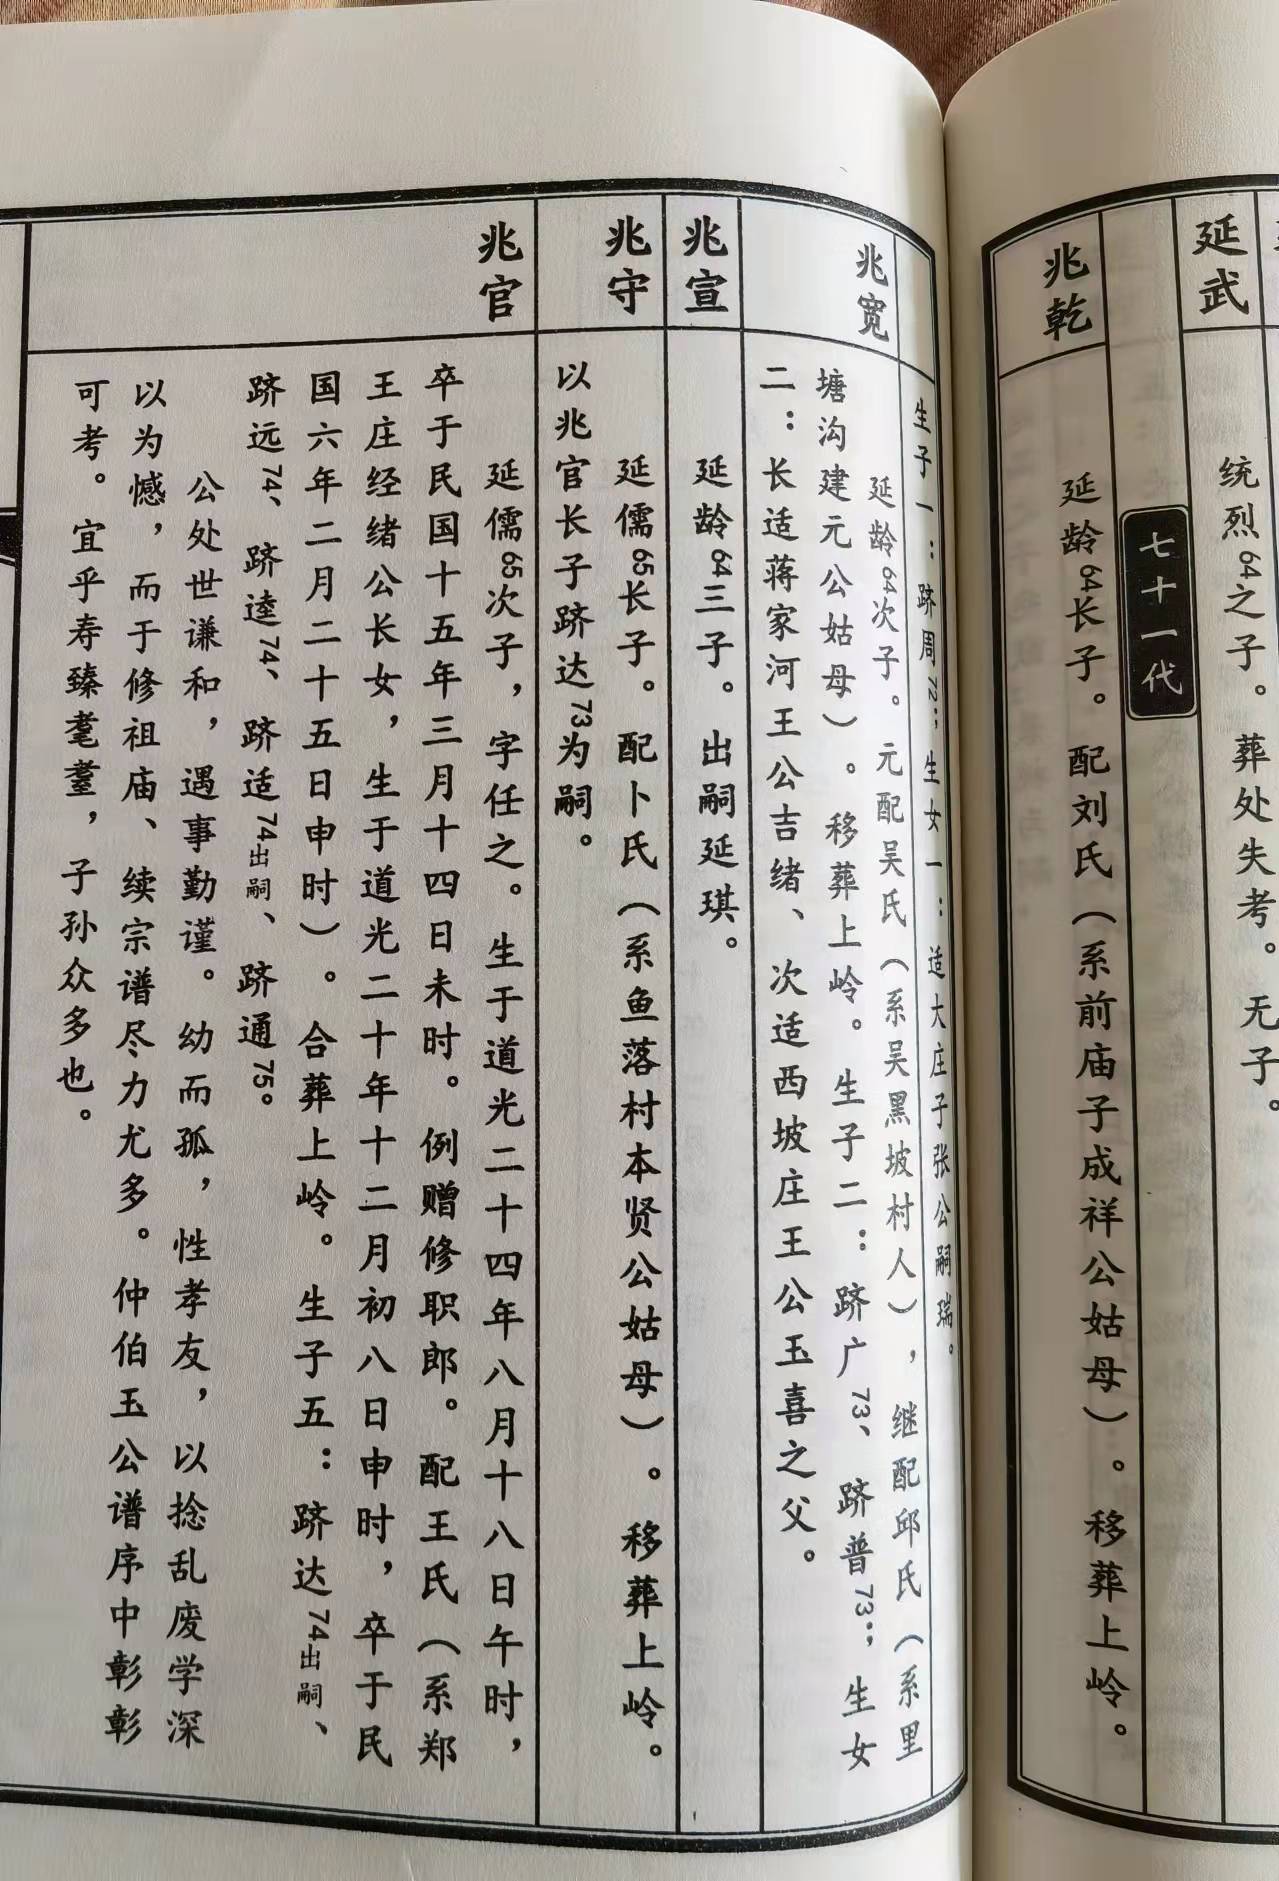 延武
统烈64之子。葬处失考。无子。
七十一代
兆乾
延龄64长子。配刘氏（系前庙子成祥公姑母）。移葬上岭。
生子一：跻周72；生女一：适大庄子张公嗣瑞。
兆宽
延龄64次子。元配吴氏（系吴黑坡村人），继配邱氏（系里
塘沟建元公姑母）。移葬上岭。生子二：跻广73、跻普73；生女
二：长适蒋家河王公吉绪、次适西坡庄王公玉喜之父。
兆宣
延龄64三子。出嗣延琪。
兆守
延儒65长子。配卜氏（系鱼落村本贤公姑母）。移葬上岭。
以兆官长子跻达73为嗣。
兆官
延儒65次子，字任之。生于道光二十四年八月十八日午时，
卒于民国十五年三月十四日未时。例赠修职郎。配王氏（系郑
王庄经绪公长女，生于道光二十年十二月初八日申时，卒于民
国六年二月二十五日申时）。合葬上岭。生子五：跻达74出嗣、
跻远74、跻逵74、跻适74出嗣、跻通75。
公处世谦和，遇事勤谨。幼而孤，性孝友，以捻乱废学深
以为憾，而于修祖庙、续宗谱尽力尤多。仲伯玉公谱序中彰彰
可考。宜乎寿臻耄耋，子孙众多也。